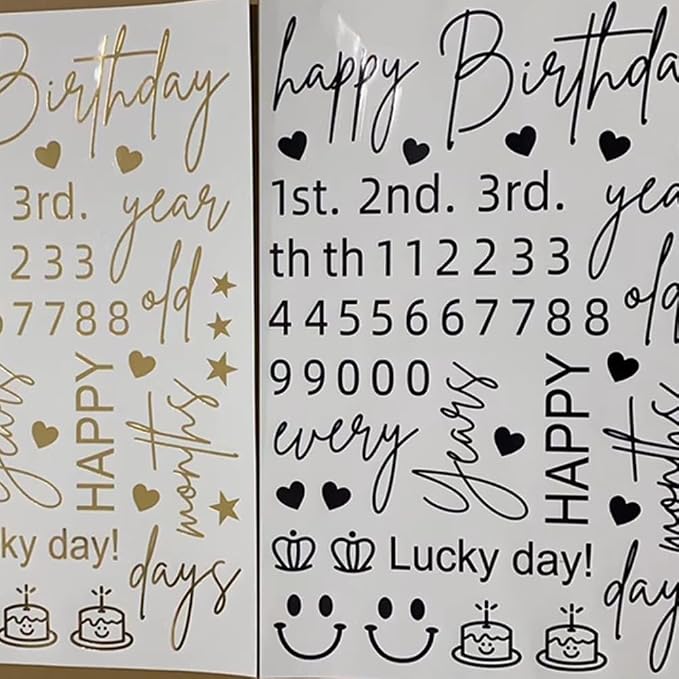 Birthday
3rd. year
2 3 3
old
7 7 8 8
HAPPY
months
ky day!
days
happy Birthda
1st. 2nd. 3rd. yea
th th 1 1 2 2 3 3
old
4 4 5 5 6 6 7 7 8 8
9 9 0 0 0
every
years
HAPPY
months
Lucky day!
day